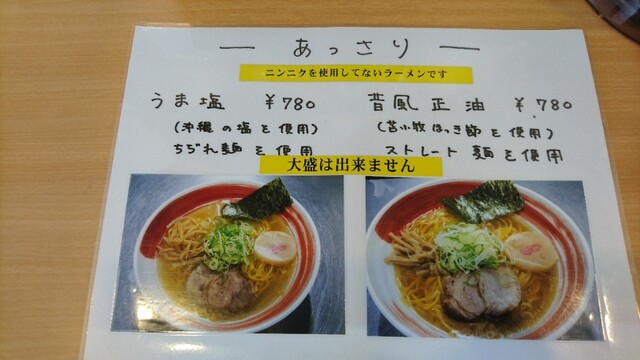 あっさり
ニンニクを使用してないラーメンです
うま塩 ¥780
(沖縄の塩を使用)
ちぢれ麺を使用
昔風正油 ¥780
(苫小牧ほっき節を使用)
ストレート麺を使用
大盛は出来ません